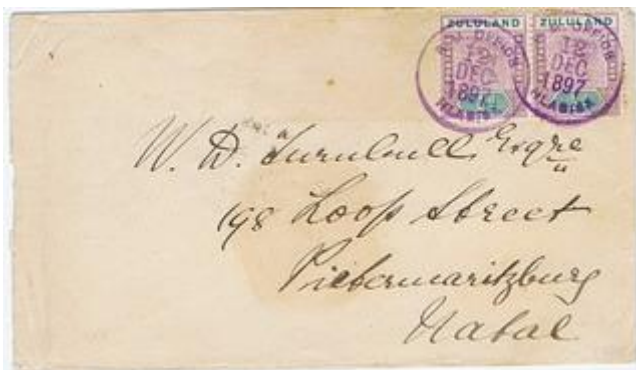 ZULULAND ZULULAND
R.M. OFFICE
12
DEC
1897
HLABISA
OFFICE
12
DEC
1897
HLABISA
W. D. Turnbull, Esqre
198 Loop Street
Pietermaritzburg
Natal